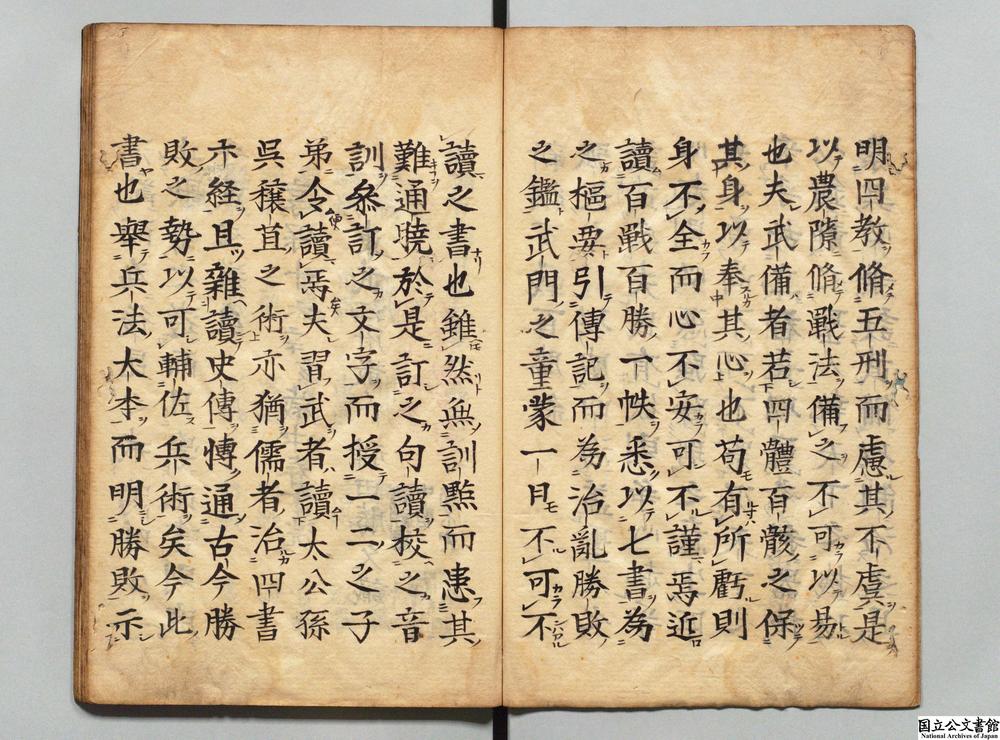 明四教脩五刑而慮其不虞是
以農隙脩戰法備之不可以易
也夫武備者若四體百骸之保
其身以奉其心也苟有所虧則
身不全而心不安可不謹焉近
讀百戰百勝一帙悉以七書為
之樞要引傳記而為治亂勝敗
之鑑武門之童蒙一日不可不
讀之書也雖然無訓點而患其
難通曉於是訂之句讀校之音
訓叅訂之文字而授一二之子
弟令讀焉夫習武者讀太公孫
吳穰苴之術亦猶儒者治四書
六経且雜讀史傳博通古今勝
敗之勢以可輔佐兵術矣今此
書也舉兵法大本而明勝敗示
国立公文書館
National Archives of Japan